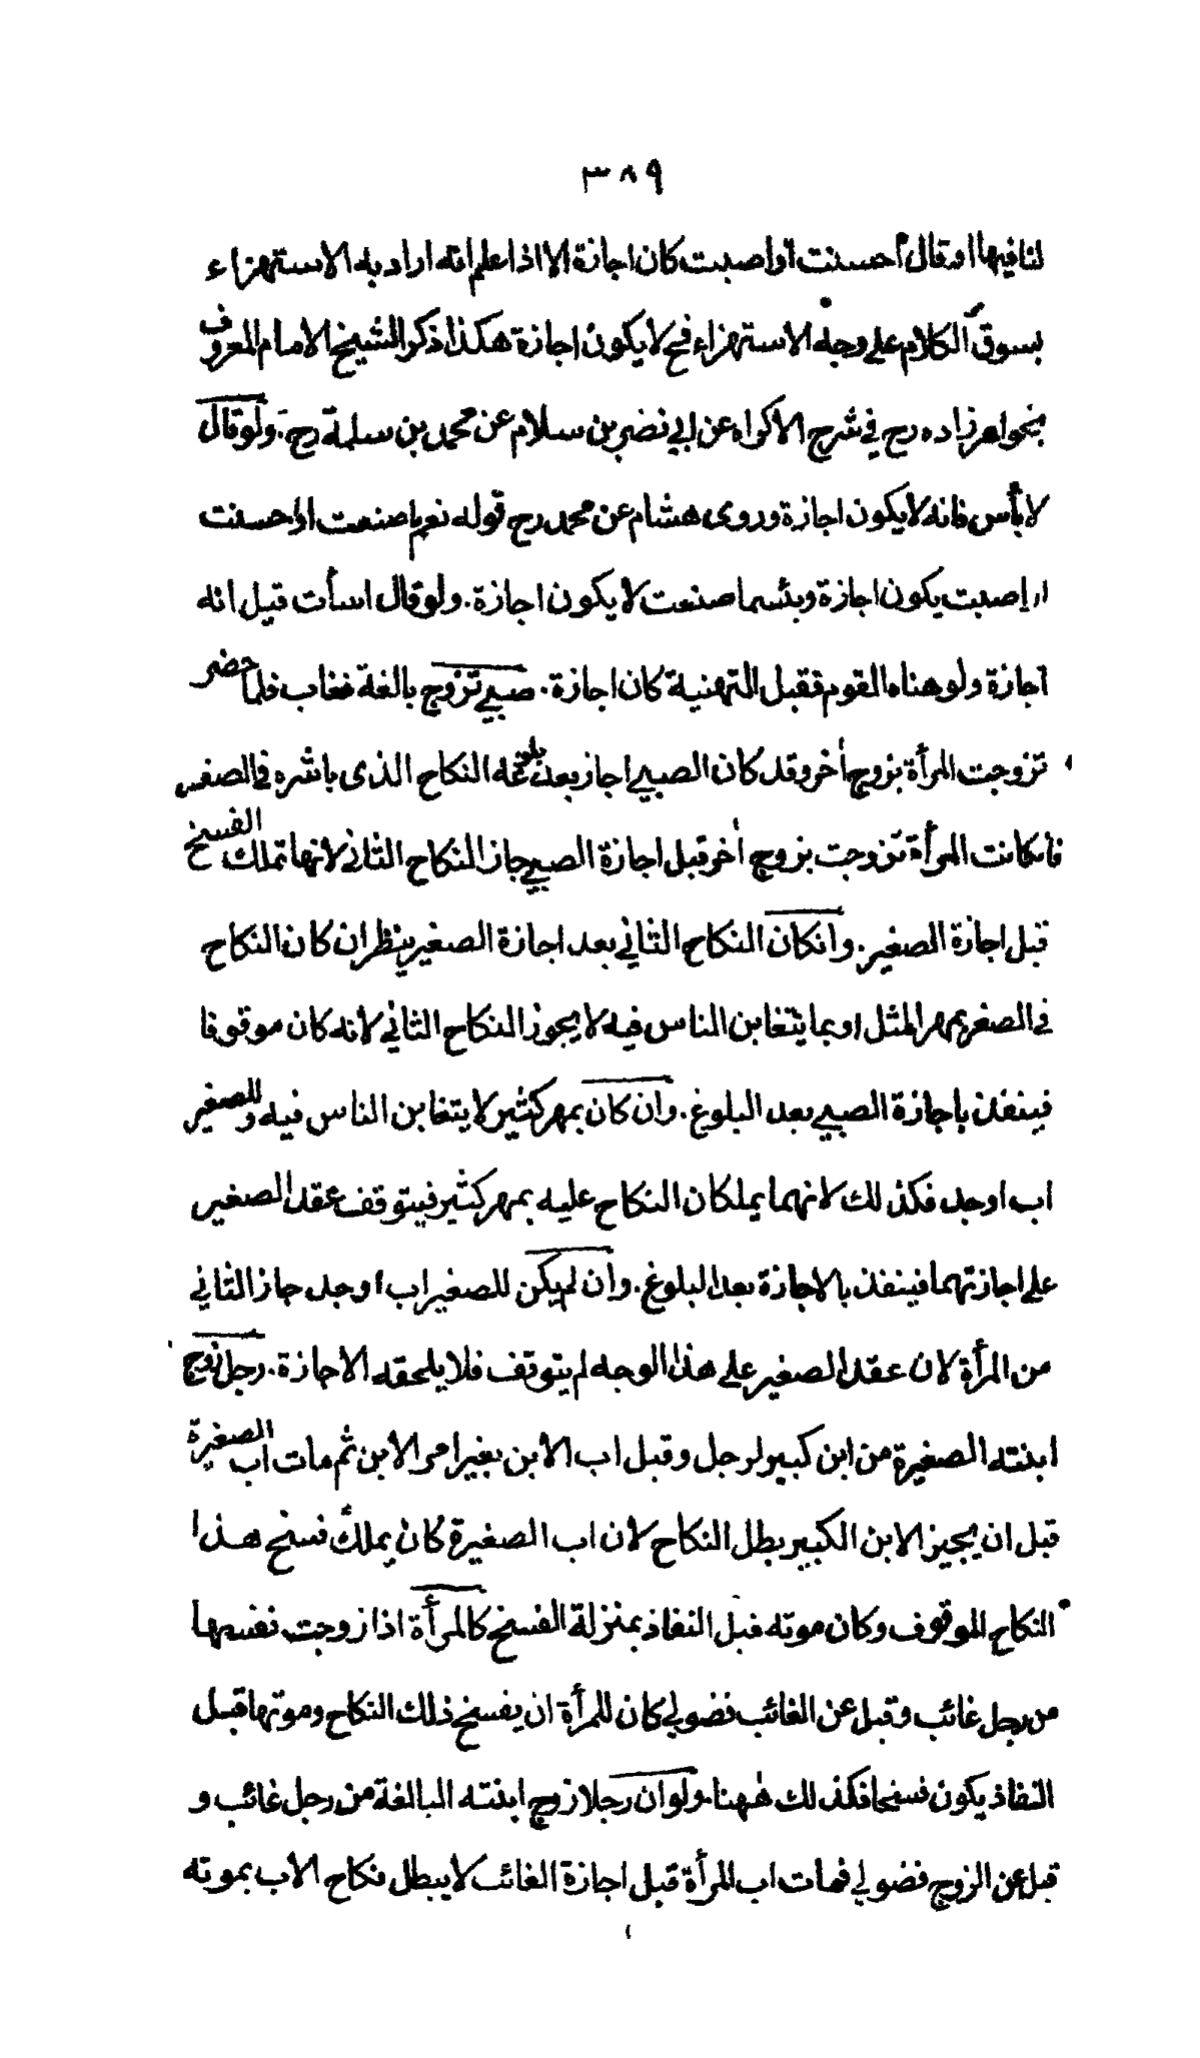 ٣٨٩
لنا فيها او قال أحسنت أو اصبت كان اجازة الا اذا علم انه اراد به الاستهزاء
بسوق الكلام على وجه الاستهزاء فح لا يكون اجازة هكذا ذكر الشيخ الامام المعروف
بخواهر زاده رح في شرح الاكراه عن ابي نصر بن سلام عن محمد بن سلمة رح. ولو قال
لا بأس فانه لا يكون اجازة وروى هشام عن محمد رح قوله نعم ما صنعت او احسنت
او اصبت يكون اجازة وبئسما صنعت لا يكون اجازة. ولو قال اسأت قيل انه
اجازة ولو هناه القوم فقبل التهنية كان اجازة. صبي تزوج بالغة فغاب فلما حضر
تزوجت المرأة بزوج أخر وقد كان الصبي اجاز بعد بلوغه النكاح الذى باشره في الصغر
فانكانت المرأة تزوجت بزوج أخر قبل اجازة الصبي جاز النكاح الثاني لانها تملك الفسخ
قبل اجازة الصغير. وانكان النكاح الثاني بعد اجازة الصغير ينظر ان كان النكاح
في الصغر بمهر المثل او بما يتغابن الناس فيه لا يجوز النكاح الثاني لانه كان موقوفا
فينفذ باجازة الصبي بعد البلوغ. وان كان بمهر كثير لا يتغابن الناس فيه وللصغير
اب او جد فكذلك لانهما يملكان النكاح عليه بمهر كثير فيتوقف عقد الصغير
على اجازتهما فينفذ بالاجازة بعد البلوغ. وان لم يكن للصغير اب او جد جاز الثاني
من المرأة لان عقد الصغير على هذا الوجه لم يتوقف فلا يلحقه الاجازة. رجل زوج
ابنته الصغيرة من ابن كبير لرجل وقبل اب الابن بغير امر الابن ثم مات اب الصغيرة
قبل ان يجيز الابن الكبير بطل النكاح لان اب الصغيرة كان يملك فسخ هذا
النكاح الموقوف وكان موته قبل النفاذ بمنزلة الفسخ كالمرأة اذا زوجت نفسها
من رجل غائب وقبل عن الغائب فضولي كان للمرأة ان يفسخ ذلك النكاح وموتها قبل
النفاذ يكون فسخا فكذلك ههنا. ولو ان رجلا زوج ابنته البالغة من رجل غائب و
قبل عن الزوج فضولي فمات اب المرأة قبل اجازة الغائب لا يبطل نكاح الاب بموته